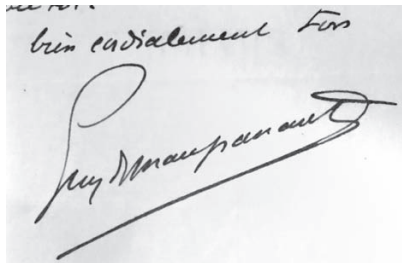 bien cordialement Tous
Guy de Maupassant